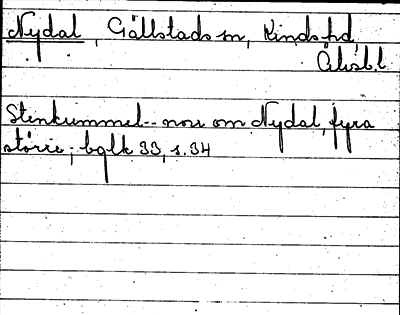 Nydal, Gällstads sn, Kinds hd,
Älvsb.l.
Stenkummel -- norr om Nydal, fyra
större; bglk 33, s. 34